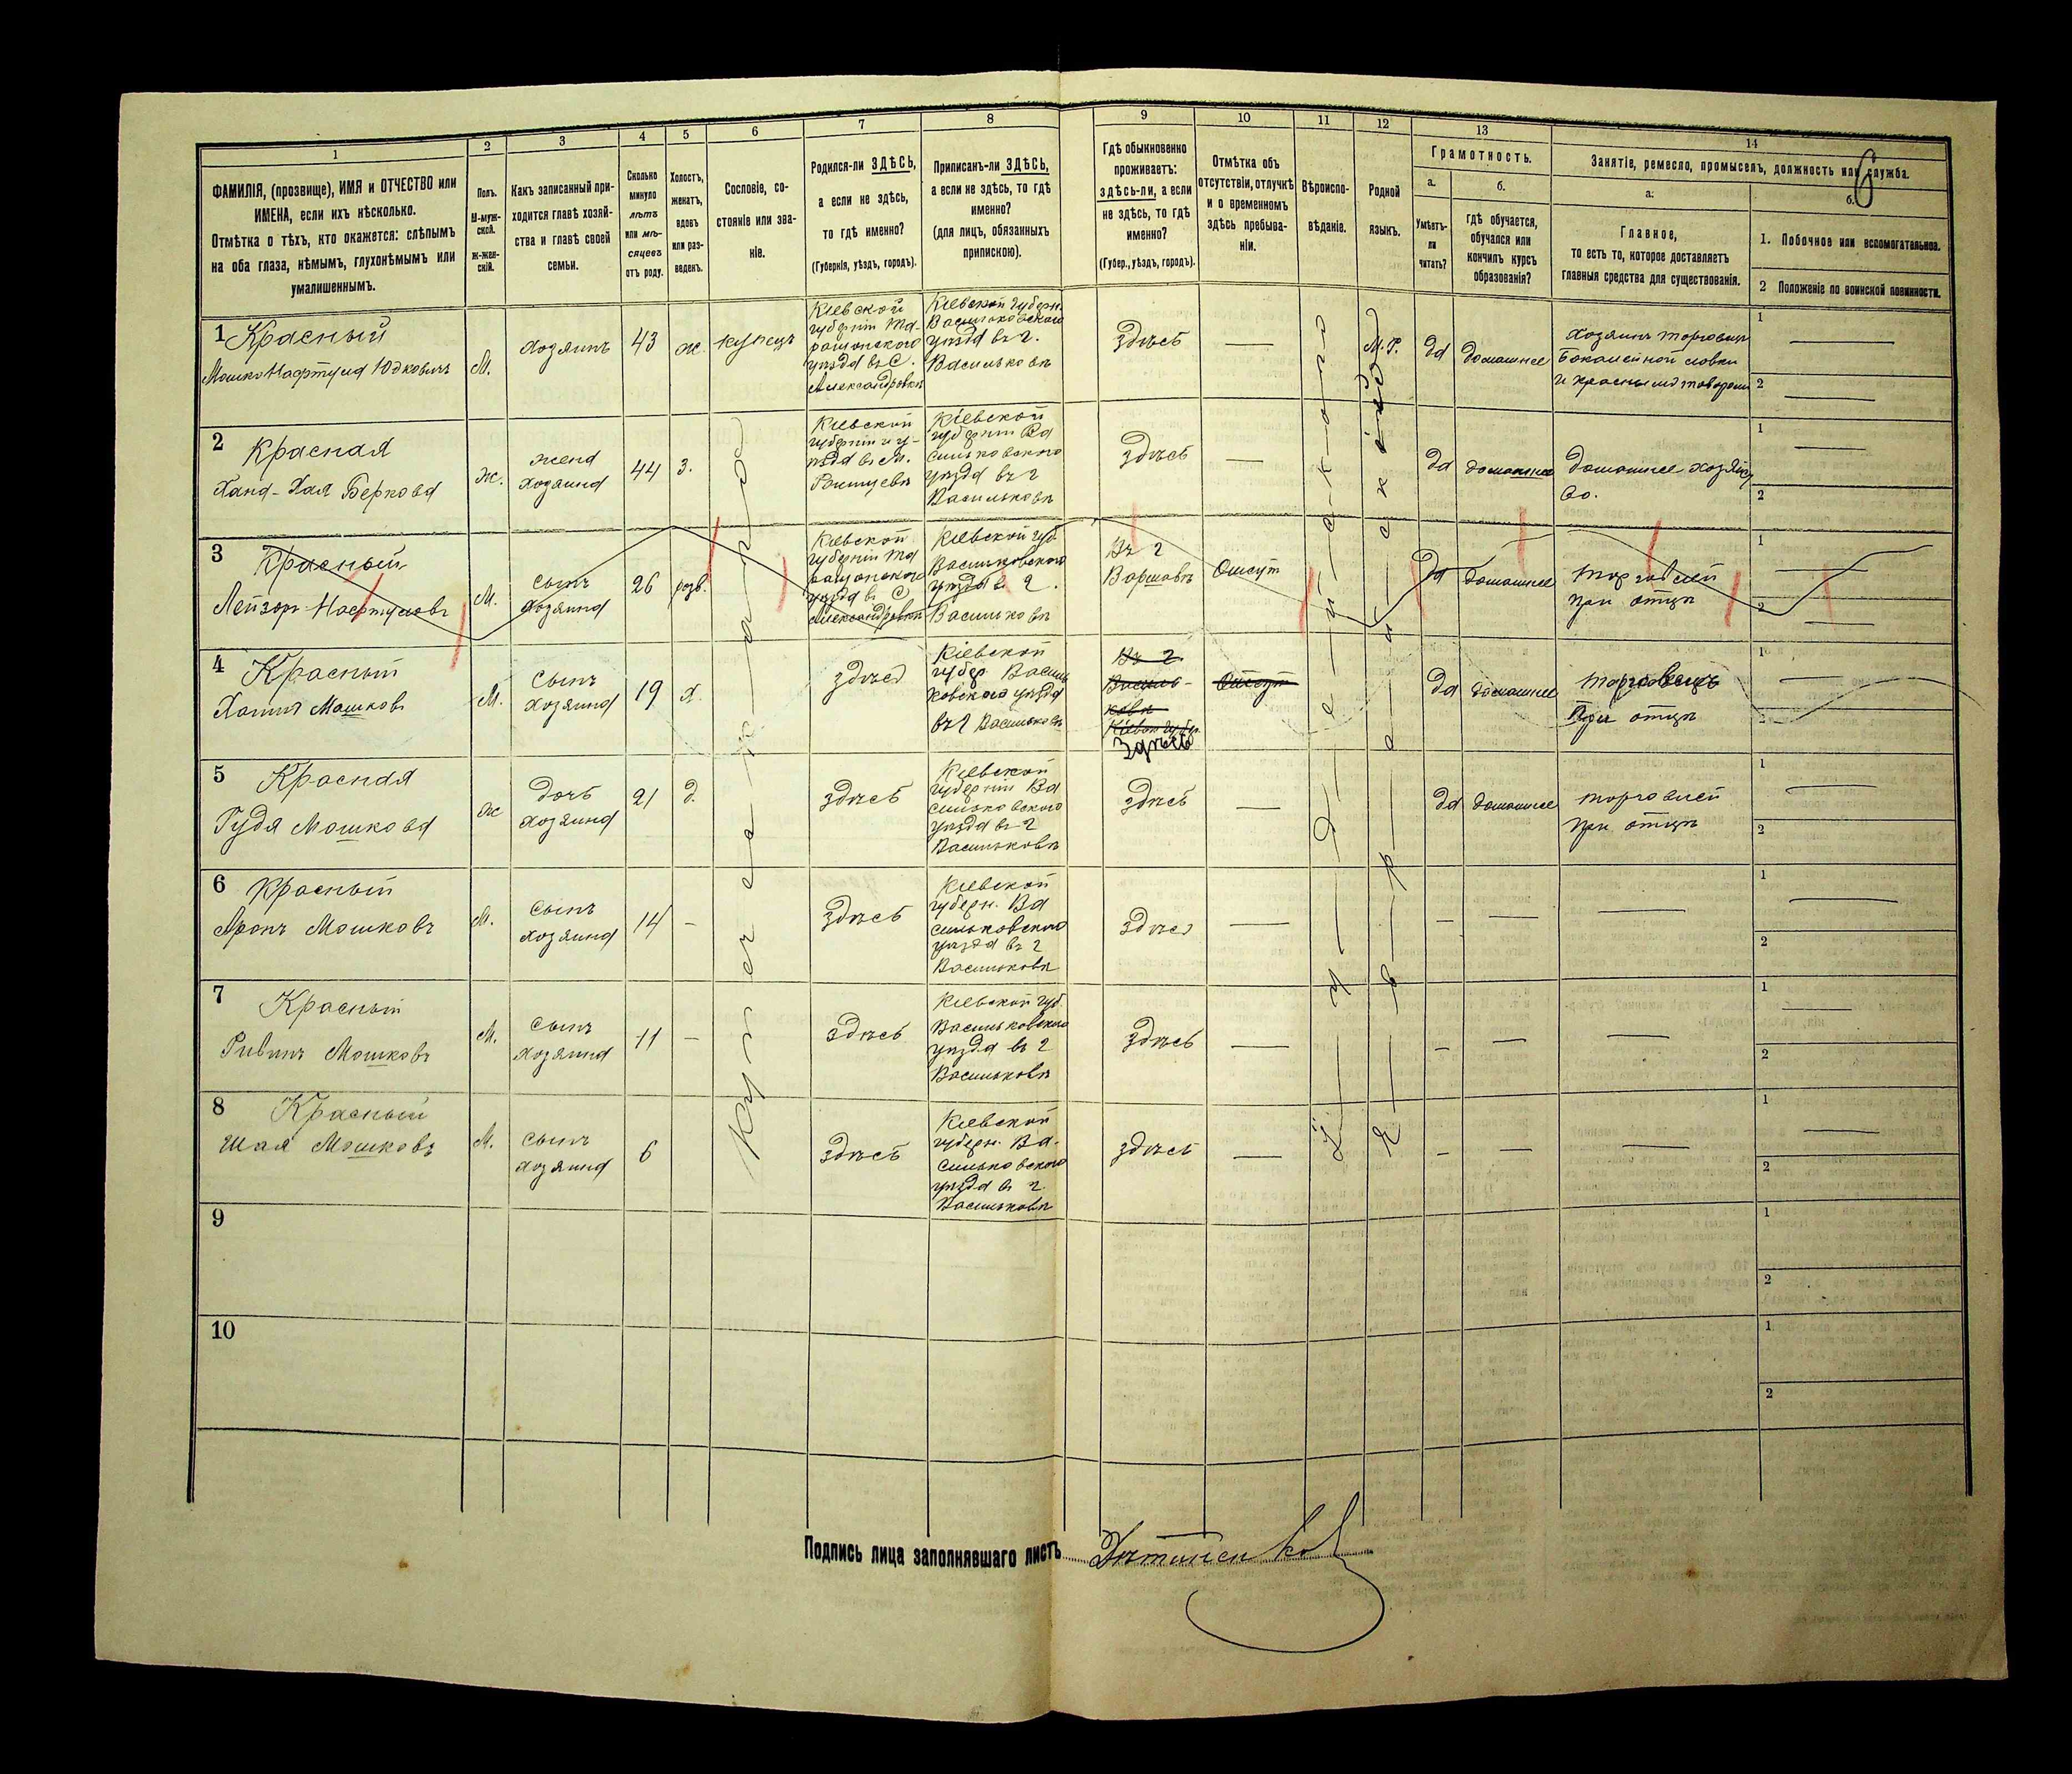 1
2
3
4
5
6
7
8
9
10
11
12
13
14
6
ФАМИЛІЯ, (прозвище), ИМЯ и ОТЧЕСТВО или
ИМЕНА, если ихъ нѣсколько.
Отмѣтка о тѣхъ, кто окажется: слѣпымъ
на оба глаза, нѣмымъ, глухонѣмымъ или
умалишеннымъ.
Полъ.
М-муж-
ской.
Ж-жен-
скій.
Какъ записанный при-
ходится главѣ хозяй-
ства и главѣ своей
семьи.
Сколько
минуло
лѣтъ
или мѣ-
сяцевъ
отъ роду.
Холостъ,
женатъ,
вдовъ
или раз-
веденъ.
Сословіе, со-
стояніе или зва-
ніе.
Родился-ли ЗДѢСЬ,
а если не здѣсь,
то гдѣ именно?
(Губернія, уѣздъ, городъ).
Приписанъ-ли ЗДѢСЬ,
а если не здѣсь, то гдѣ
именно?
(для лицъ, обязанныхъ
припискою).
Гдѣ обыкновенно
проживаетъ:
здѣсь-ли, а если
не здѣсь, то гдѣ
именно?
(Губер., уѣздъ, городъ).
Отмѣтка объ
отсутствіи, отлучкѣ
и о временномъ
здѣсь пребыва-
ніи.
Вѣроиспо-
вѣданіе.
Родной
языкъ.
Грамотность.
а.
Умѣетъ-
ли
читать?
б.
гдѣ обучается,
обучался или
кончилъ курсъ
образованія?
Занятіе, ремесло, промыселъ, должность или служба.
а.
Главное,
то есть то, которое доставляетъ
главныя средства для существованія.
б.
1. Побочное или вспомогательное.
2 Положеніе по воинской повинности.
1 Красный
Мошко Нафтула Юдковичъ
М.
хозяинъ
43
ж.
купецъ
Кіевской
губерніи Та-
ращанского
уѣзда въ С.
Александровкѣ
Кіевской губерн.
Васильковского
уѣзда въ г.
Васильковѣ
здѣсь
М.Р.
да
домашнее
Хозяинъ торговци
Бакалейной ловки
и красными товарами
1
2
2 Красная
Хана-Хая Беркова
ж.
жена
хозяина
44
з.
Кіевской
губерніи и у-
ѣзда въ м.
Кіевской
губерніи Ва
сильковского
уѣзда въ г
Васильковѣ
здѣсь
да
домашнее
домашнее хозяйст
во.
1
2
3 Красный
Лейзоръ Нафтуловъ
М.
сынъ
хозяина
26
разв.
Кіевской
губерніи Та
ращанского
уѣзда въ С
Александровкѣ
Кіевской губ
Васильковского
уѣзда въ г.
Васильковѣ
Въ г
Варшавѣ
Отсут
да
домашнее
торговлей
при отцѣ
1
2
4 Красный
Хаимъ Мошковъ
М.
сынъ
хозяина
19
х.
здѣсь
Кіевской
губер Василь
ковского уѣзда
въ г Васильковѣ
Въ г.
Василь-
ковѣ
Кіевск губер
Здѣсь
Отсут
да
домашнее
торговецъ
При отцѣ
1
2
5 Красная
Гудя Мошкова
ж
дочь
хозяина
21
д.
здѣсь
Кіевской
губерніи Ва
сильковского
уѣзда въ г
Васильковѣ
здѣсь
да
домашнее
торговлей
при отцѣ
1
2
6 Красный
Аронъ Мошковъ
М.
сынъ
хозяина
14
здѣсь
Кіевской
губерн. Ва
сильковского
уѣзда въ г
Васильковѣ
здѣсь
1
2
7 Красный
Рувинъ Мошковъ
М.
сынъ
хозяина
11
здѣсь
Кіевской губ
Васильковского
уѣзда въ г
Васильковѣ
здѣсь
1
2
8 Красный
Шая Мошковъ
М.
сынъ
хозяина
6
здѣсь
Кіевской
губерн. Ва-
сильковского
уѣзда въ г.
Васильковѣ
здѣсь
1
2
9
1
2
10
1
2
Купеческаго
Іудейскаго
Еврейскій
Подпись лица заполнявшаго листъ